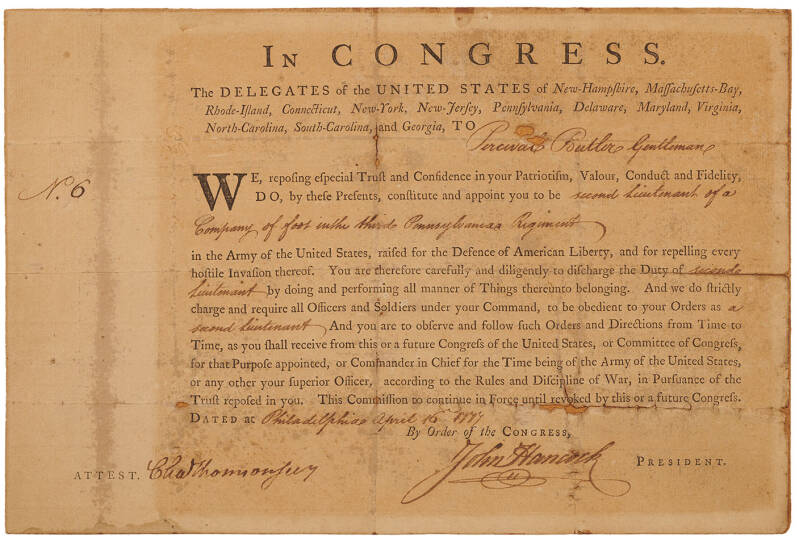 IN CONGRESS.
The DELEGATES of the UNITED STATES of New-Hampſhire, Maſſachuſetts-Bay,
Rhode-Iſland, Connecticut, New-York, New-Jerſey, Pennſylvania, Delaware, Maryland, Virginia,
North-Carolina, South-Carolina, and Georgia, TO
Percival Butler Gentleman
No. 6
WE, repoſing eſpecial Truſt and Confidence in your Patriotiſm, Valour, Conduct and Fidelity,
DO, by theſe Preſents, conſtitute and appoint you to be second Lieutenant of a
Company of foot in the third Pennsylvania Regiment
in the Army of the United States, raiſed for the Defence of American Liberty, and for repelling every
hoſtile Invaſion thereof. You are therefore carefully and diligently to diſcharge the Duty of second
Lieutenant by doing and performing all manner of Things thereunto belonging. And we do ſtrictly
charge and require all Officers and Soldiers under your Command, to be obedient to your Orders as a
second Lieutenant And you are to obſerve and follow ſuch Orders and Directions from Time to
Time, as you ſhall receive from this or a future Congreſs of the United States, or Committee of Congreſs,
for that Purpoſe appointed, or Commander in Chief for the Time being of the Army of the United States,
or any other your ſuperior Officer, according to the Rules and Diſcipline of War, in Purſuance of the
Truſt repoſed in you. This Commiſſion to continue in Force until revoked by this or a future Congreſs.
DATED at Philadelphia April 16th 1777
By Order of the CONGRESS,
John Hancock PRESIDENT.
ATTEST. Chas Thomson secy